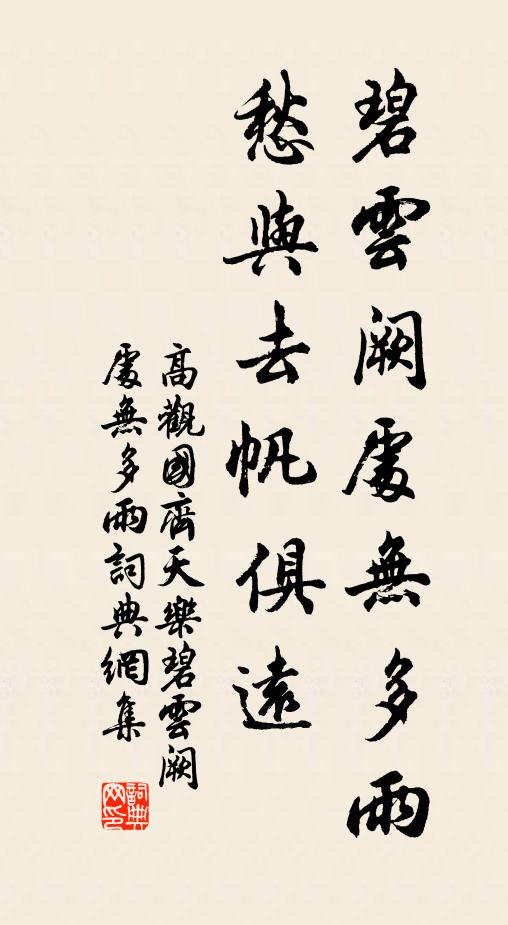 碧雲闕處無多雨
愁與去帆俱遠
高觀國齊天樂碧雲闕
處無多雨詞典網集
詞典网印